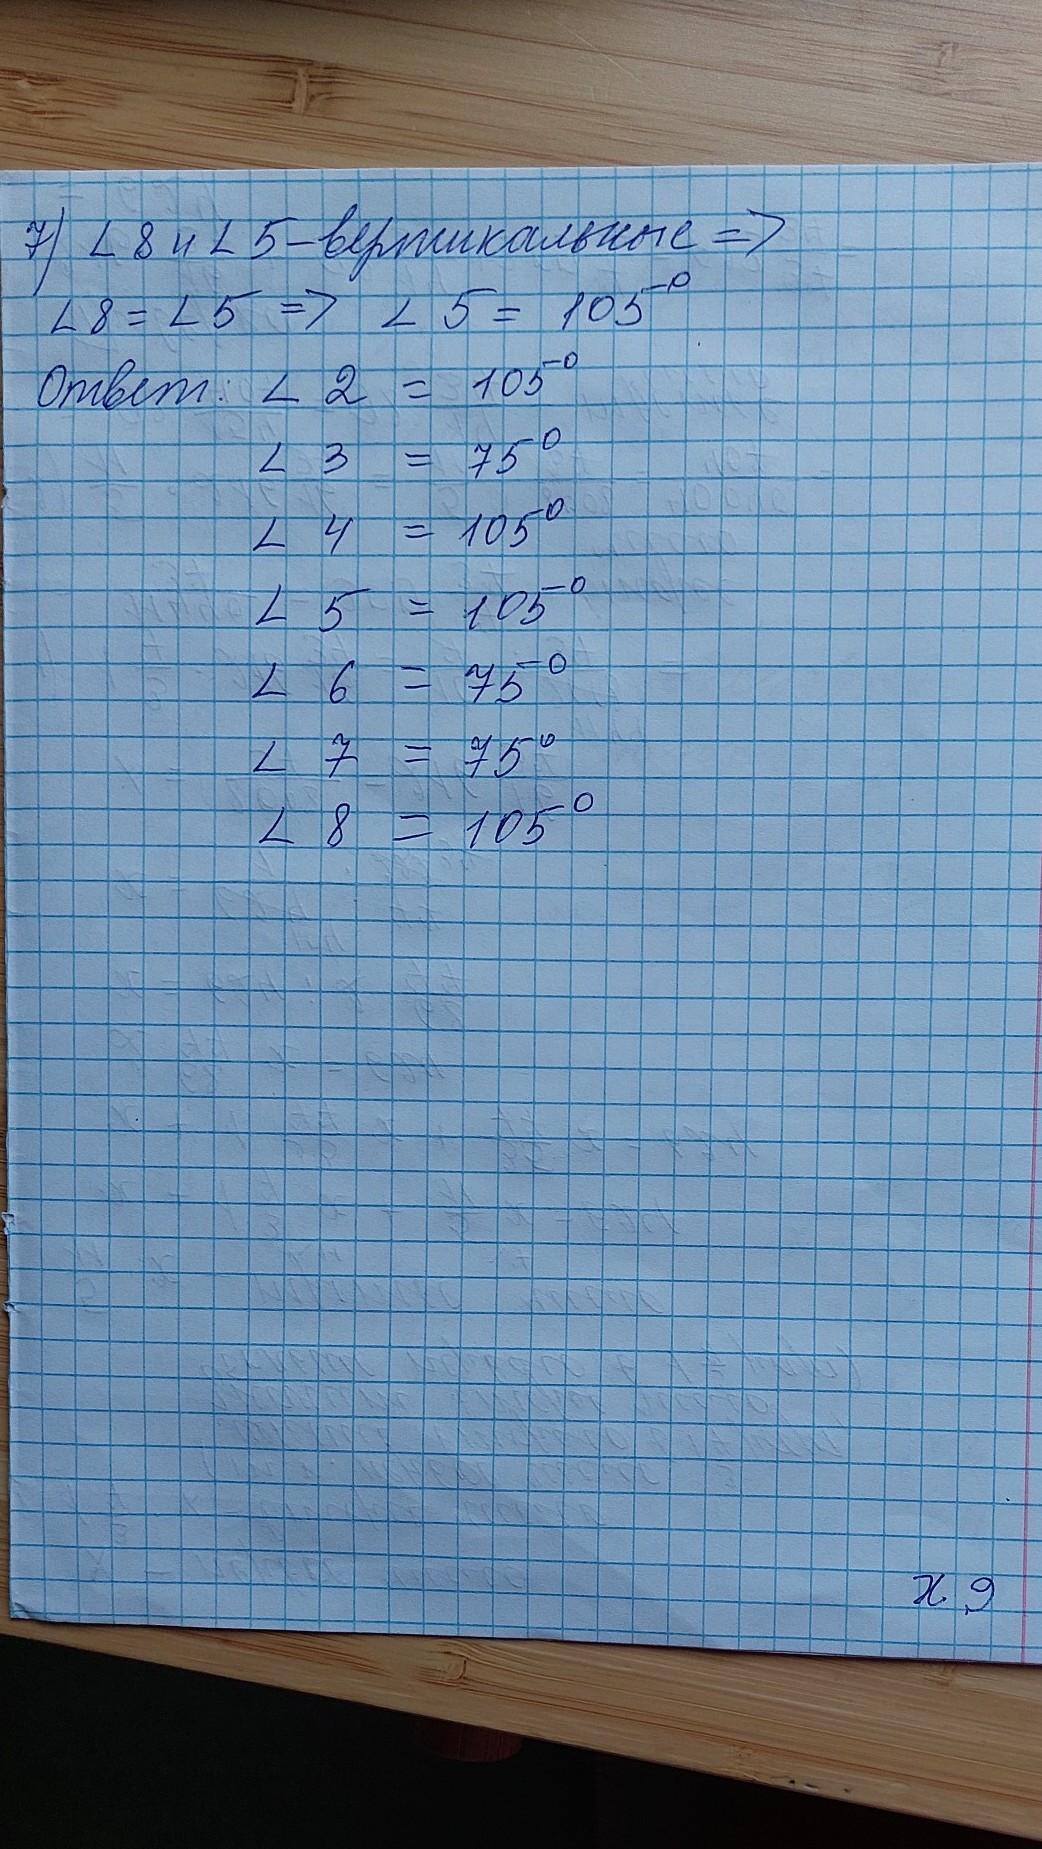 7) ∠8 и ∠5 - вертикальные =>
∠8 = ∠5 => ∠5 = 105°
Ответ: ∠2 = 105°
∠3 = 75°
∠4 = 105°
∠5 = 105°
∠6 = 75°
∠7 = 75°
∠8 = 105°